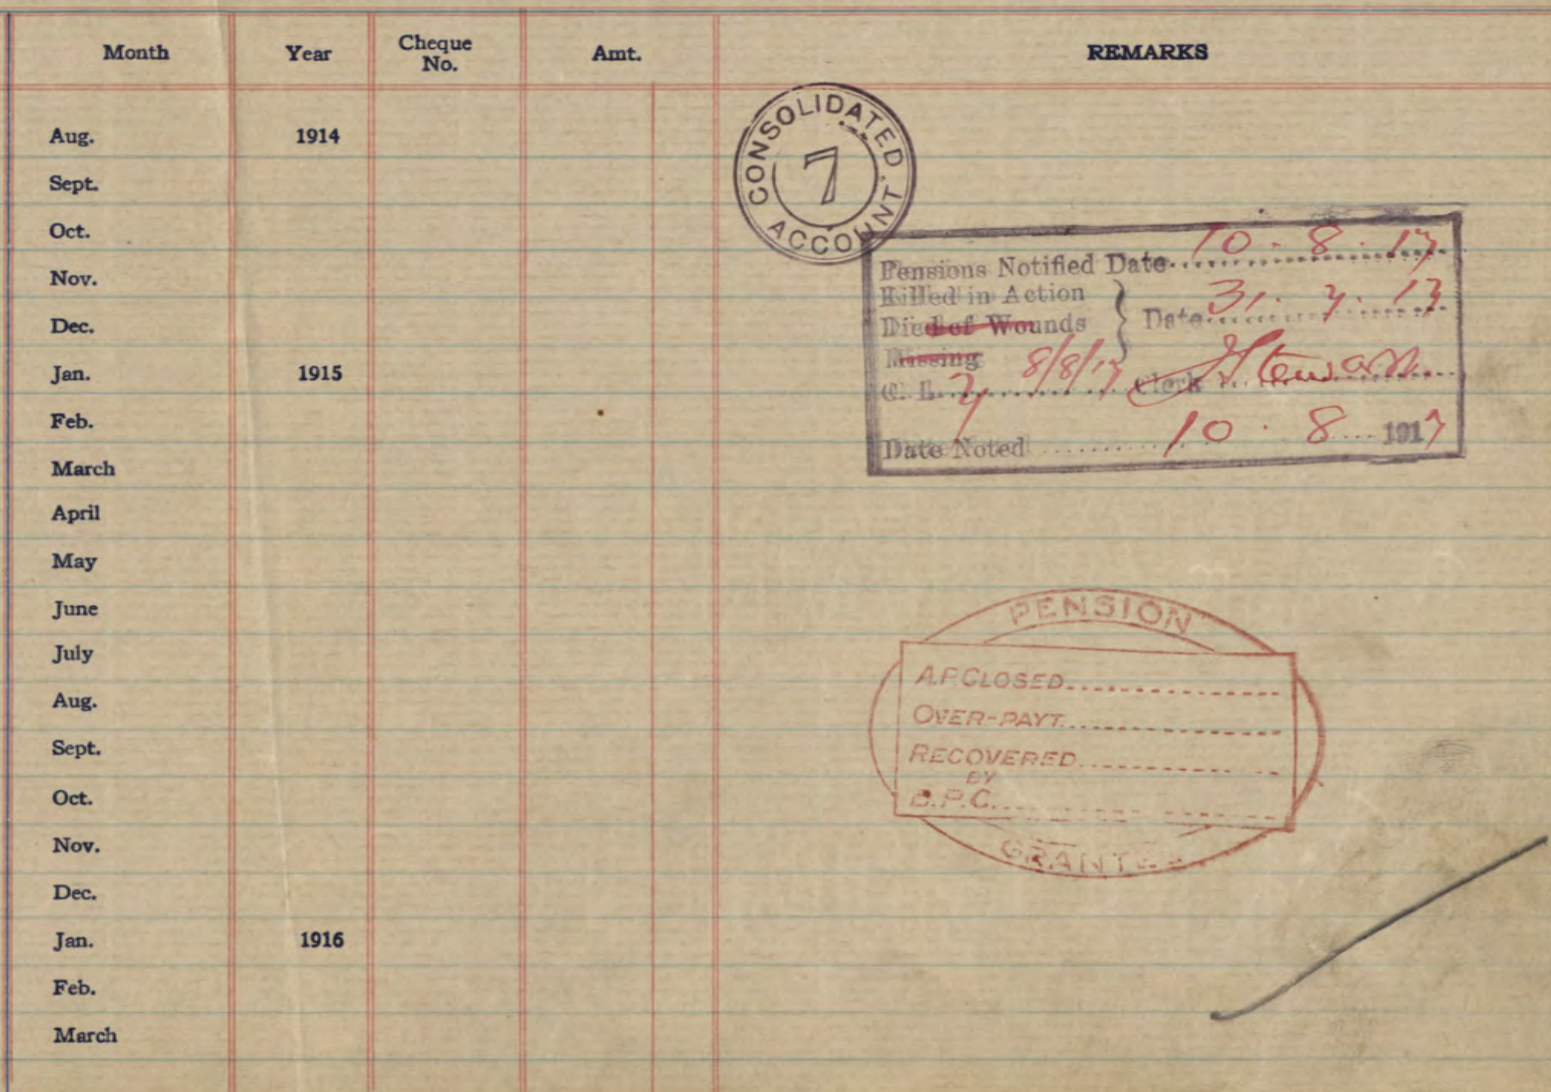 Month Year Cheque No. Amt. REMARKS
Aug. 1914
Sept.
Oct.
Nov.
Dec.
Jan. 1915
Feb.
March
April
May
June
July
Aug.
Sept.
Oct.
Nov.
Dec.
Jan. 1916
Feb.
March
CONSOLIDATED ACCOUNT
7
Pensions Notified Date 10 . 8 . 17
Killed in Action
Died of Wounds } Date 31 . 7 . 17
Missing
C. L. 8/8/17 Clerk
Date Noted 10 . 8 1917
PENSION
A.P. CLOSED
OVER-PAYT.
RECOVERED
BY
B.P.C.
GRANTED